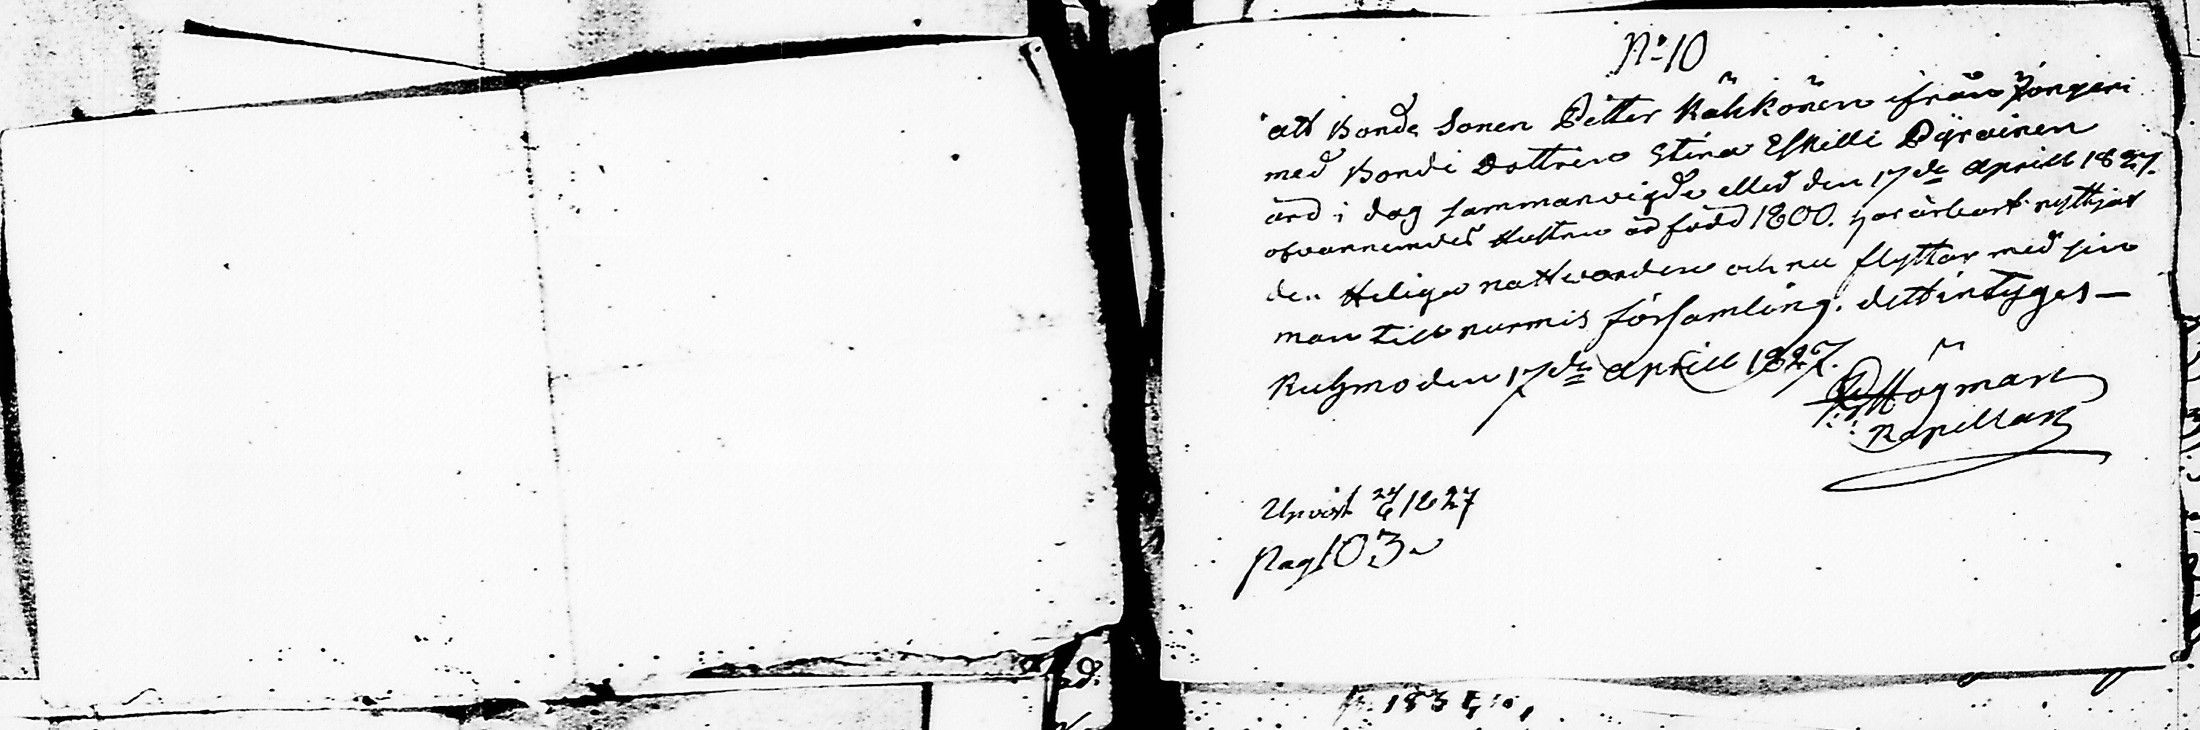 No 10
att Bonde Sonen Petter Kähkönen ifrån Jongeri
med Bonde Dottren Stina Eskilli Pyroinen
ärd i dag sammanvigde den 17de Aprill 1827.
ofvannemdes Hustru är född 1800. har ärbart nyttjat
den Heliga nattvarden och nu flyttar med sin
man till nurmis församling. dett intyges —
Kuhmo den 17de Aprill 1827.
Högman
Kapellan
Upvist 24/6 1827
Pag 103